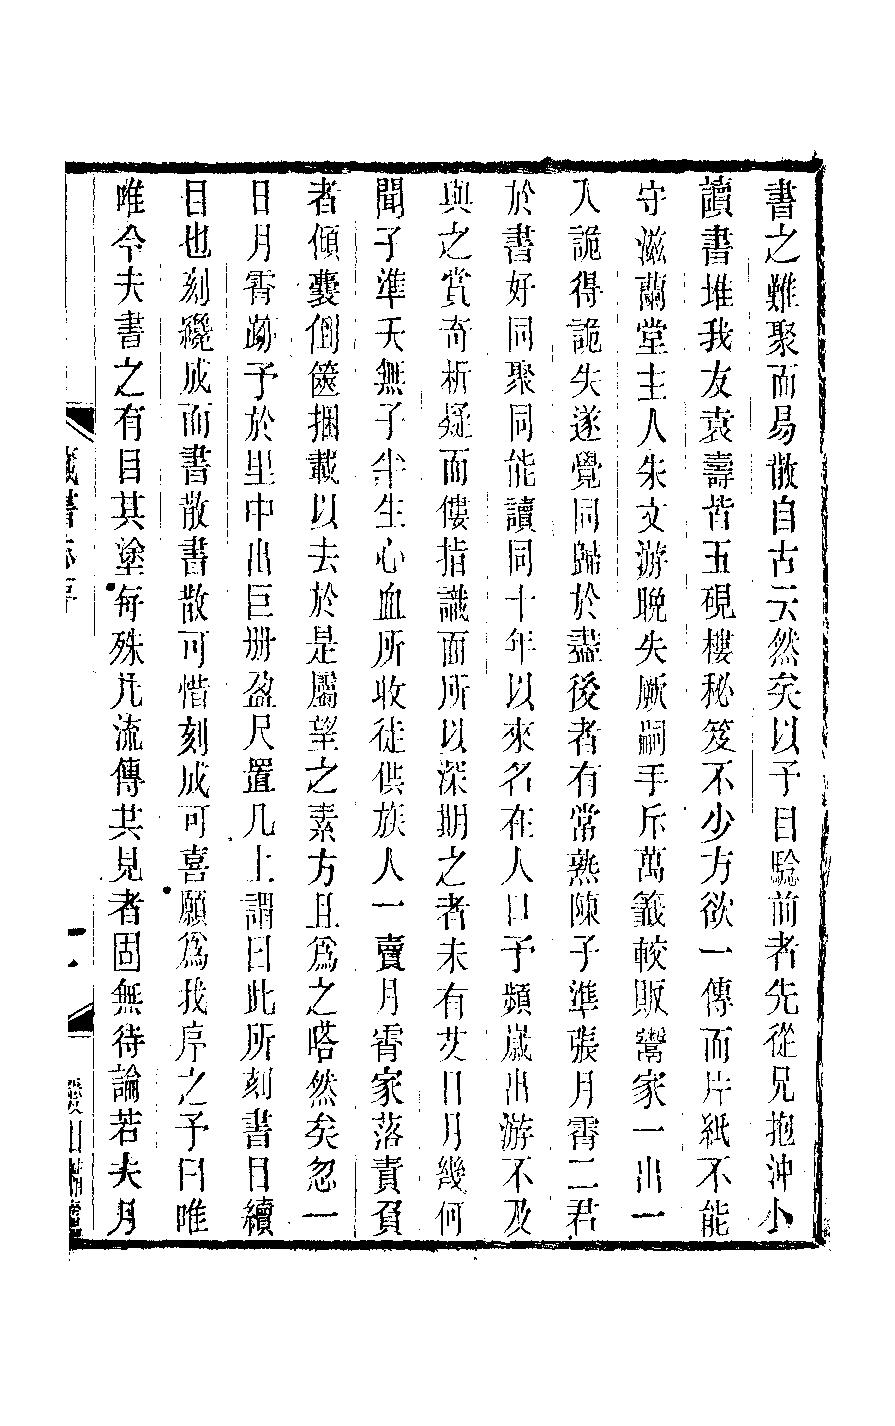 書之難聚而易散自古云然矣以予目驗前者先從兄抱沖小
讀書堆我友袁壽皆五硯樓秘笈不少方欲一傳而片紙不能
守滋蘭堂主人朱文游晩失厥嗣手斥萬籤較販鬻家一出一
入詭得詭失遂覺同歸於盡後者有常熟陳子準張月霄二君
於書好同聚同能讀同十年以來名在人口予頻嵗出游不及
與之賞奇析疑而僂指識面所以深期之者未有艾日月幾何
聞子準夭無子半生心血所收徒供族人一賣月霄家落責負
者傾囊倒篋捆載以去於是屬望之素方且爲之嗒然矣忽一
日月霄訪予於里中出巨册盈尺置几上謂曰此所刻書目續
目也刻纔成而書散書散可惜刻成可喜願爲我序之予曰唯
唯今夫書之有目其塗每殊凡流傳共見者固無待論若夫月
藏書志序